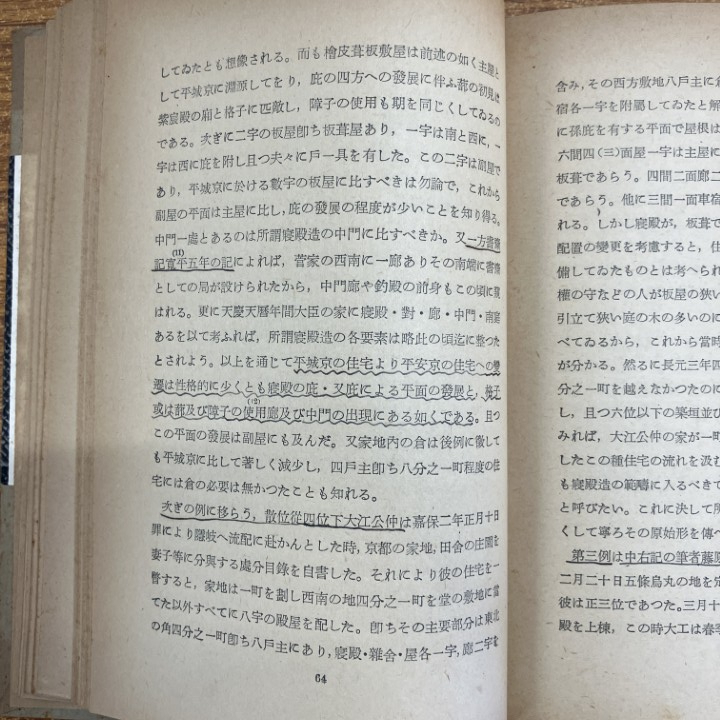 してゐたとも想像される。而も檜皮葺板敷屋は前述の如く主屋と
して平城京に淵原してをり，庇の四方への發展に伴ふ蔀の初見は
紫宸殿の廂と格子に匹敵し，障子の使用も期を同じくしてゐるの
である。次ぎに二字の板屋卽ち板葺屋あり，一字は南と西に，一
字は西に庇を附し且つ夫々に戸一具を有した。この二字は副屋で
あり，平城京に於ける數字の板屋に比すべきは勿論で，これから
副屋の平面は主屋に比し，庇の發展の程度が少いことを知り得る。
中門一處とあるのは所謂寢殿造の中門に比すべきか。又一方書齋
(11)
記寛平五年の記によれば，菅家の西南に一廊ありその南端に書齋
としての局が設けられたから，中門廊や釣殿の前身もこの頃に現
はれる。更に天慶天曆年間大臣の家に寢殿・對・廊・中門・南庭
あるを以て考ふれば，所謂寢殿造の各要素は略此の頃迄に整つた
とされよう。以上を通じて平城京の住宅より平安京の住宅への變
遷は性格的に少くとも寢殿の庇・又庇による平面の發展と，格子
(12)
或は蔀及び障子の使用廊及び中門の出現にある如くである。且つ
この平面の發展は副屋にも及んだ。又家地內の倉は後例に徵して
も平城京に比して著しく減少し，四戸主卽ち八分之一町程度の住
宅には倉の必要は無かつたことも知れる。
次ぎの例に移らう，散位從四位下大江公仲は嘉保二年正月十日
罪により隱岐へ流配に赴かんとした時，京都の家地，田舍の庄園を
妻子等に分與する處分目錄を自書した。それにより彼の住宅を一
瞥すると，家地は一町を劃し西南の地四分之一町を堂の敷地に當
てた以外すべてに八字の殿屋を配した。卽ちその主要部分は東北
の角四分之一町卽ち八戸主にあり，寢殿・雜舍・屋各一字，廊二字を
64
含み，その西方敷地八戸主に
宿各一字を附屬してゐたと解
に孫庇を有する平面で屋根は
六間四（三）面屋一字は主屋に
板葺であらう。四間二面廊二
であらう。他に三間一面車宿
れる。しかし寢殿が，板葺で
配置の變更を考慮すると，住
備してゐたものとは考へられ
權の守などの人が板屋の狹い
引立て狹い庭の木の多いのに
べてゐるから，これから當時
が分かる。然るに長元三年四
分之一町を越えなかつたのに
し，且つ六位以下の築垣並び
みれば，大江公仲の家が一町
したこの種住宅の流れを汲む
も寢殿造の範疇に入るべきで
と呼びたい。これに決して所
くして寧ろその原始形を傳へ
第三例は中右記の筆者藤原
二月二十日五條烏丸の地を
彼は正三位であつた。三月十
殿を上棟，この時大工は春季